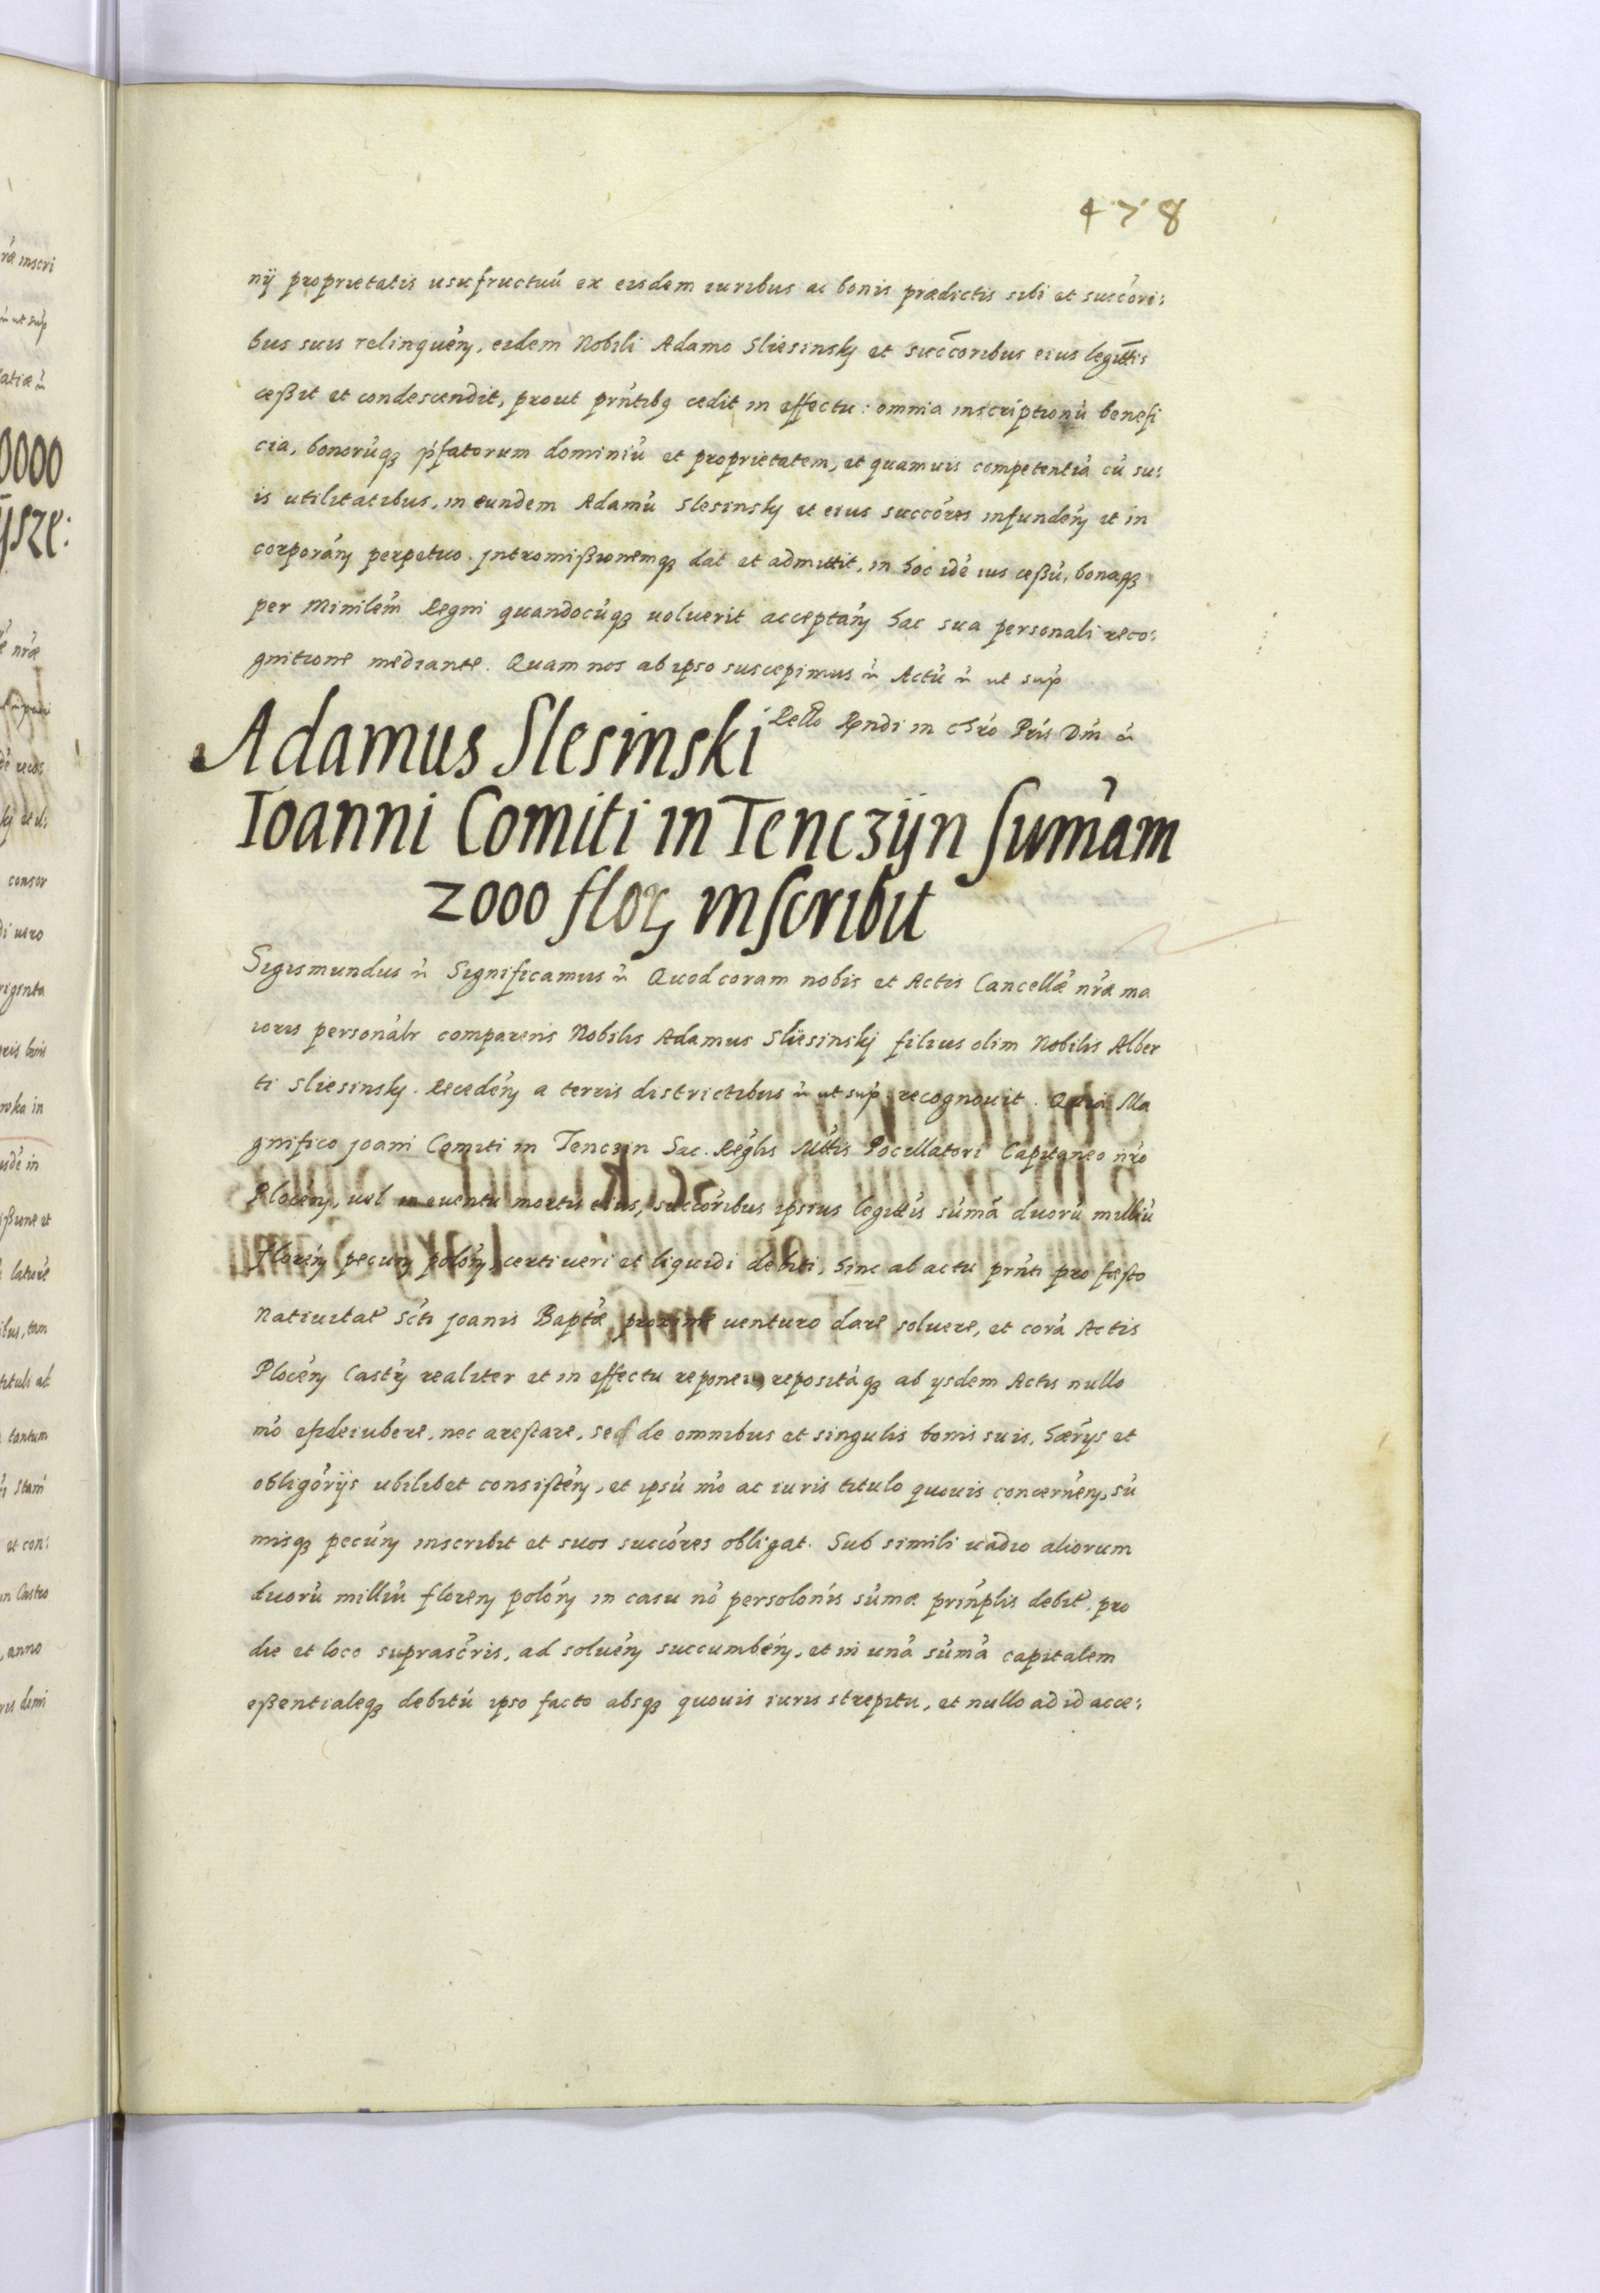 478
nij proprietatis usufructuũ ex eisdem iuribus ac bonis prædictis sibi et succ̃ori:
bus suis relinqueñ, eidem Nobili Adamo Sliesinskj et succ̃oribus eius legittĩs
ceßit et condescendit, prout prñtibꝫ cedit in effectu: omnia inscriptionũ benefi
cia, bonorũqꝫ p̃fatorum dominiũ et proprietatem, et quamuis competentiã cũ su:
is utilitatibus, in eundem Adamũ Slesinskj et eius succõres infundeñ et in
corporañ perpetuo. Jntromißionemqꝫ dat et admittit, in hoc idẽ ius ceßũ, bonaqꝫ
per Minilem̃ Regni quandocũqꝫ uoluerit acceptañ hac sua personali reco:
gnitione mediante. Quam nos ab ipso suscepimus ñ Actũ ñ ut sup̃
Rell̃o Rñdi in Chr̃o Pr̃is Dñi ñ
Adamus Slesinski
Ioanni Comiti in Tenczijn Sum̃am
2000 floꝝ inscribit
Sigismundus ñ Significamus ñ Quod coram nobis et Actis Cancellæ̃ nr̃æ ma
ioris personalr̃ comparens Nobilis Adamus Sliesinskj filius olim Nobilis Alber
ti Sliesinskj. Recedeñ a terris districtibus ñ ut sup̃ recognouit. Quia Ma
gnifico Joani Comiti in Tenczin Sac. Reg̃lis Mttis Pocillatori Capitaneo nr̃o
Ploceñ, uel in euentu mortis eius, succõribus ipsius legittĩs sum̃ã duorũ milliũ
floreñ pecuñ poloñ, certi ueri et liquidi debiti, hinc ab actu prñti pro fæsto
Natiuitat̃ Sc̃ti Joanis Baptæ̃ proxime uenturo dare soluere, et corã Actis
Ploceñ Castr̃ realiter et in effectu reponere, repositãqꝫ ab ijsdem Actis nullo
mõ efideiubere, nec arestare, sed de omnibus et singulis bonis suis, hær̃ijs et
obligõrijs ubilibet consisteñ, et ipsũ mõ ac iuris titulo quouis concerneñ, sũ
misqꝫ pecuñ inscribit et suos succõres obligat. Sub simili uadio aliorum
duorũ milliũ floreñ poloñ in casu nõ persolõnis sum̃æ prinp̃lis debit̃, pro
die et loco suprascr̃is, ad solueñ succumbeñ, et in unã sum̃ã capitalem
eßentialeqꝫ debitũ ipso facto absqꝫ quouis iuris strepitu, et nullo ad id acce: